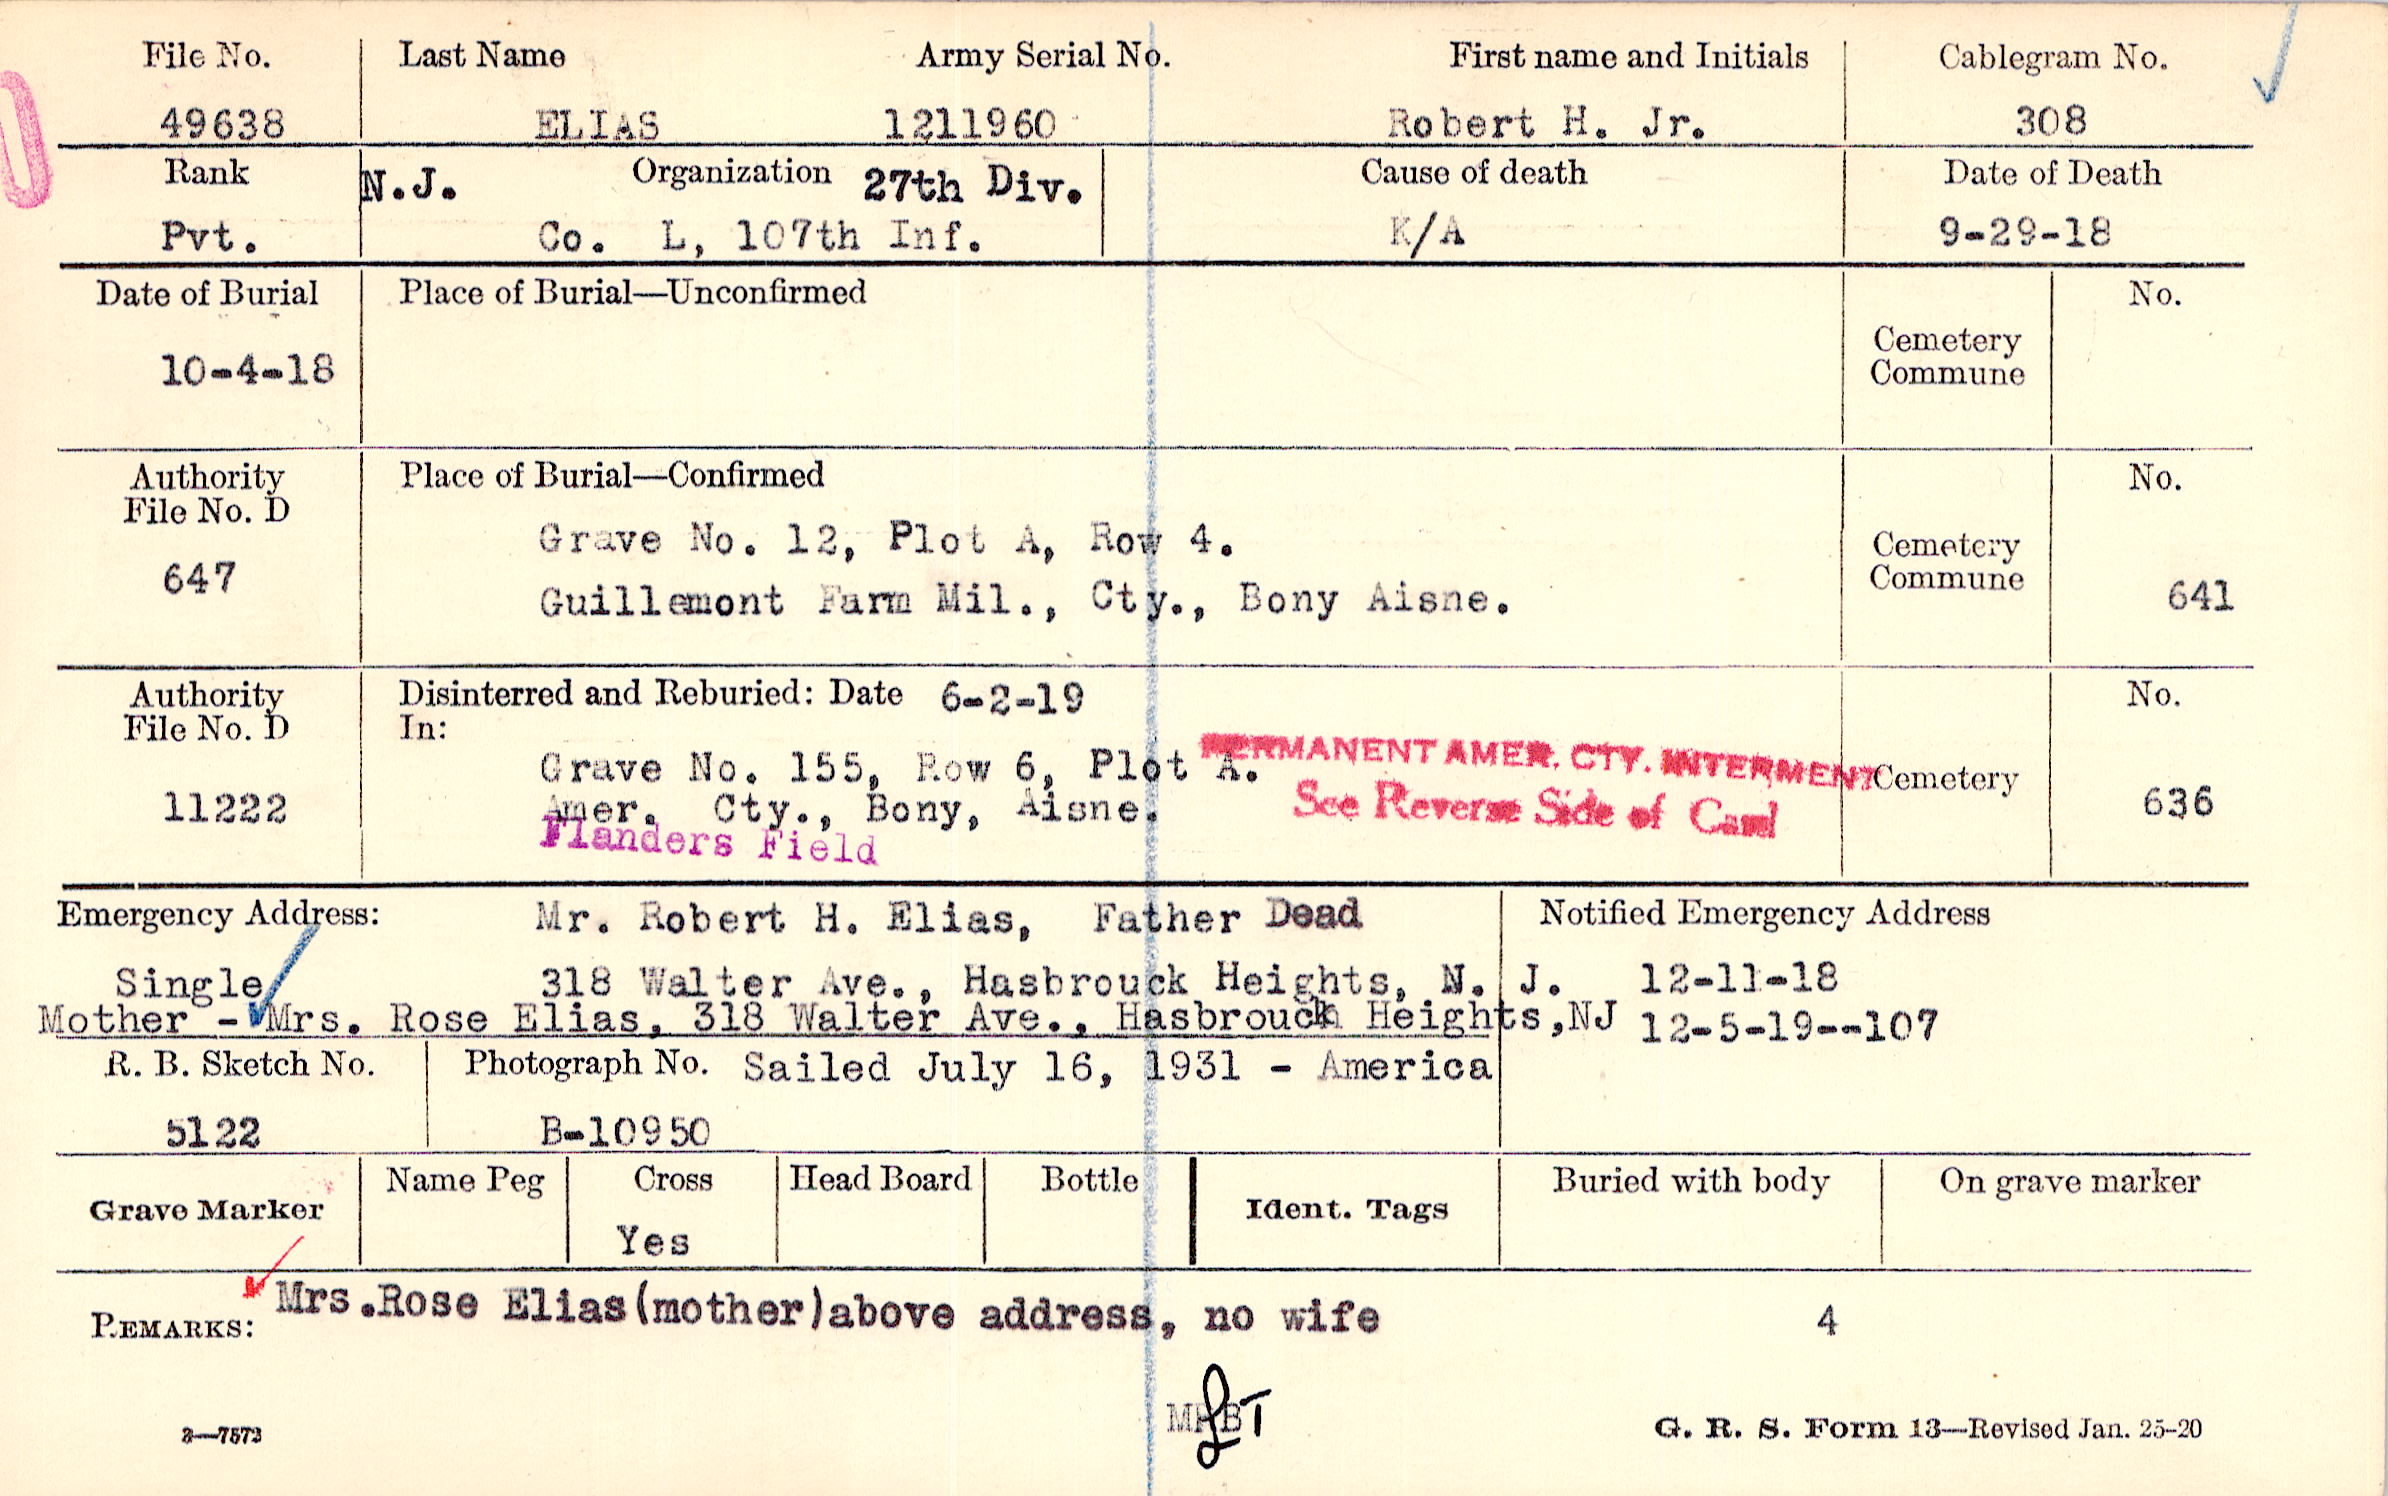 File No. Last Name Army Serial No. First name and Initials Cablegram No.
49638 ELIAS 1211960 Robert H. Jr. 308
Rank N.J. Organization 27th Div. Cause of death Date of Death
Pvt. Co. L, 107th Inf. K/A 9-29-18
Date of Burial Place of Burial—Unconfirmed No.
10-4-18 Cemetery
Commune
Authority Place of Burial—Confirmed No.
File No. D
647 Grave No. 12, Plot A, Row 4. Cemetery
Guillemont Farm Mil., Cty., Bony Aisne. Commune 641
Authority Disinterred and Reburied: Date 6-2-19 No.
File No. D In:
PERMANENT AMER. CTY. INTERMENT
11222 Grave No. 155, Row 6, Plot A. Cemetery
See Reverse Side of Card
Amer. Cty., Bony, Aisne. 636
Flanders Field
Emergency Address: Mr. Robert H. Elias, Father Dead Notified Emergency Address
Single 318 Walter Ave., Hasbrouck Heights, N. J. 12-11-18
Mother - Mrs. Rose Elias, 318 Walter Ave., Hasbrouck Heights,NJ 12-5-19--107
R. B. Sketch No. Photograph No. Sailed July 16, 1931 - America
5122 B-10950
Grave Marker Name Peg Cross Head Board Bottle Ident. Tags Buried with body On grave marker
Yes
REMARKS: Mrs.Rose Elias(mother)above address, no wife 4
3—7573 G. R. S. Form 13—Revised Jan. 25-20